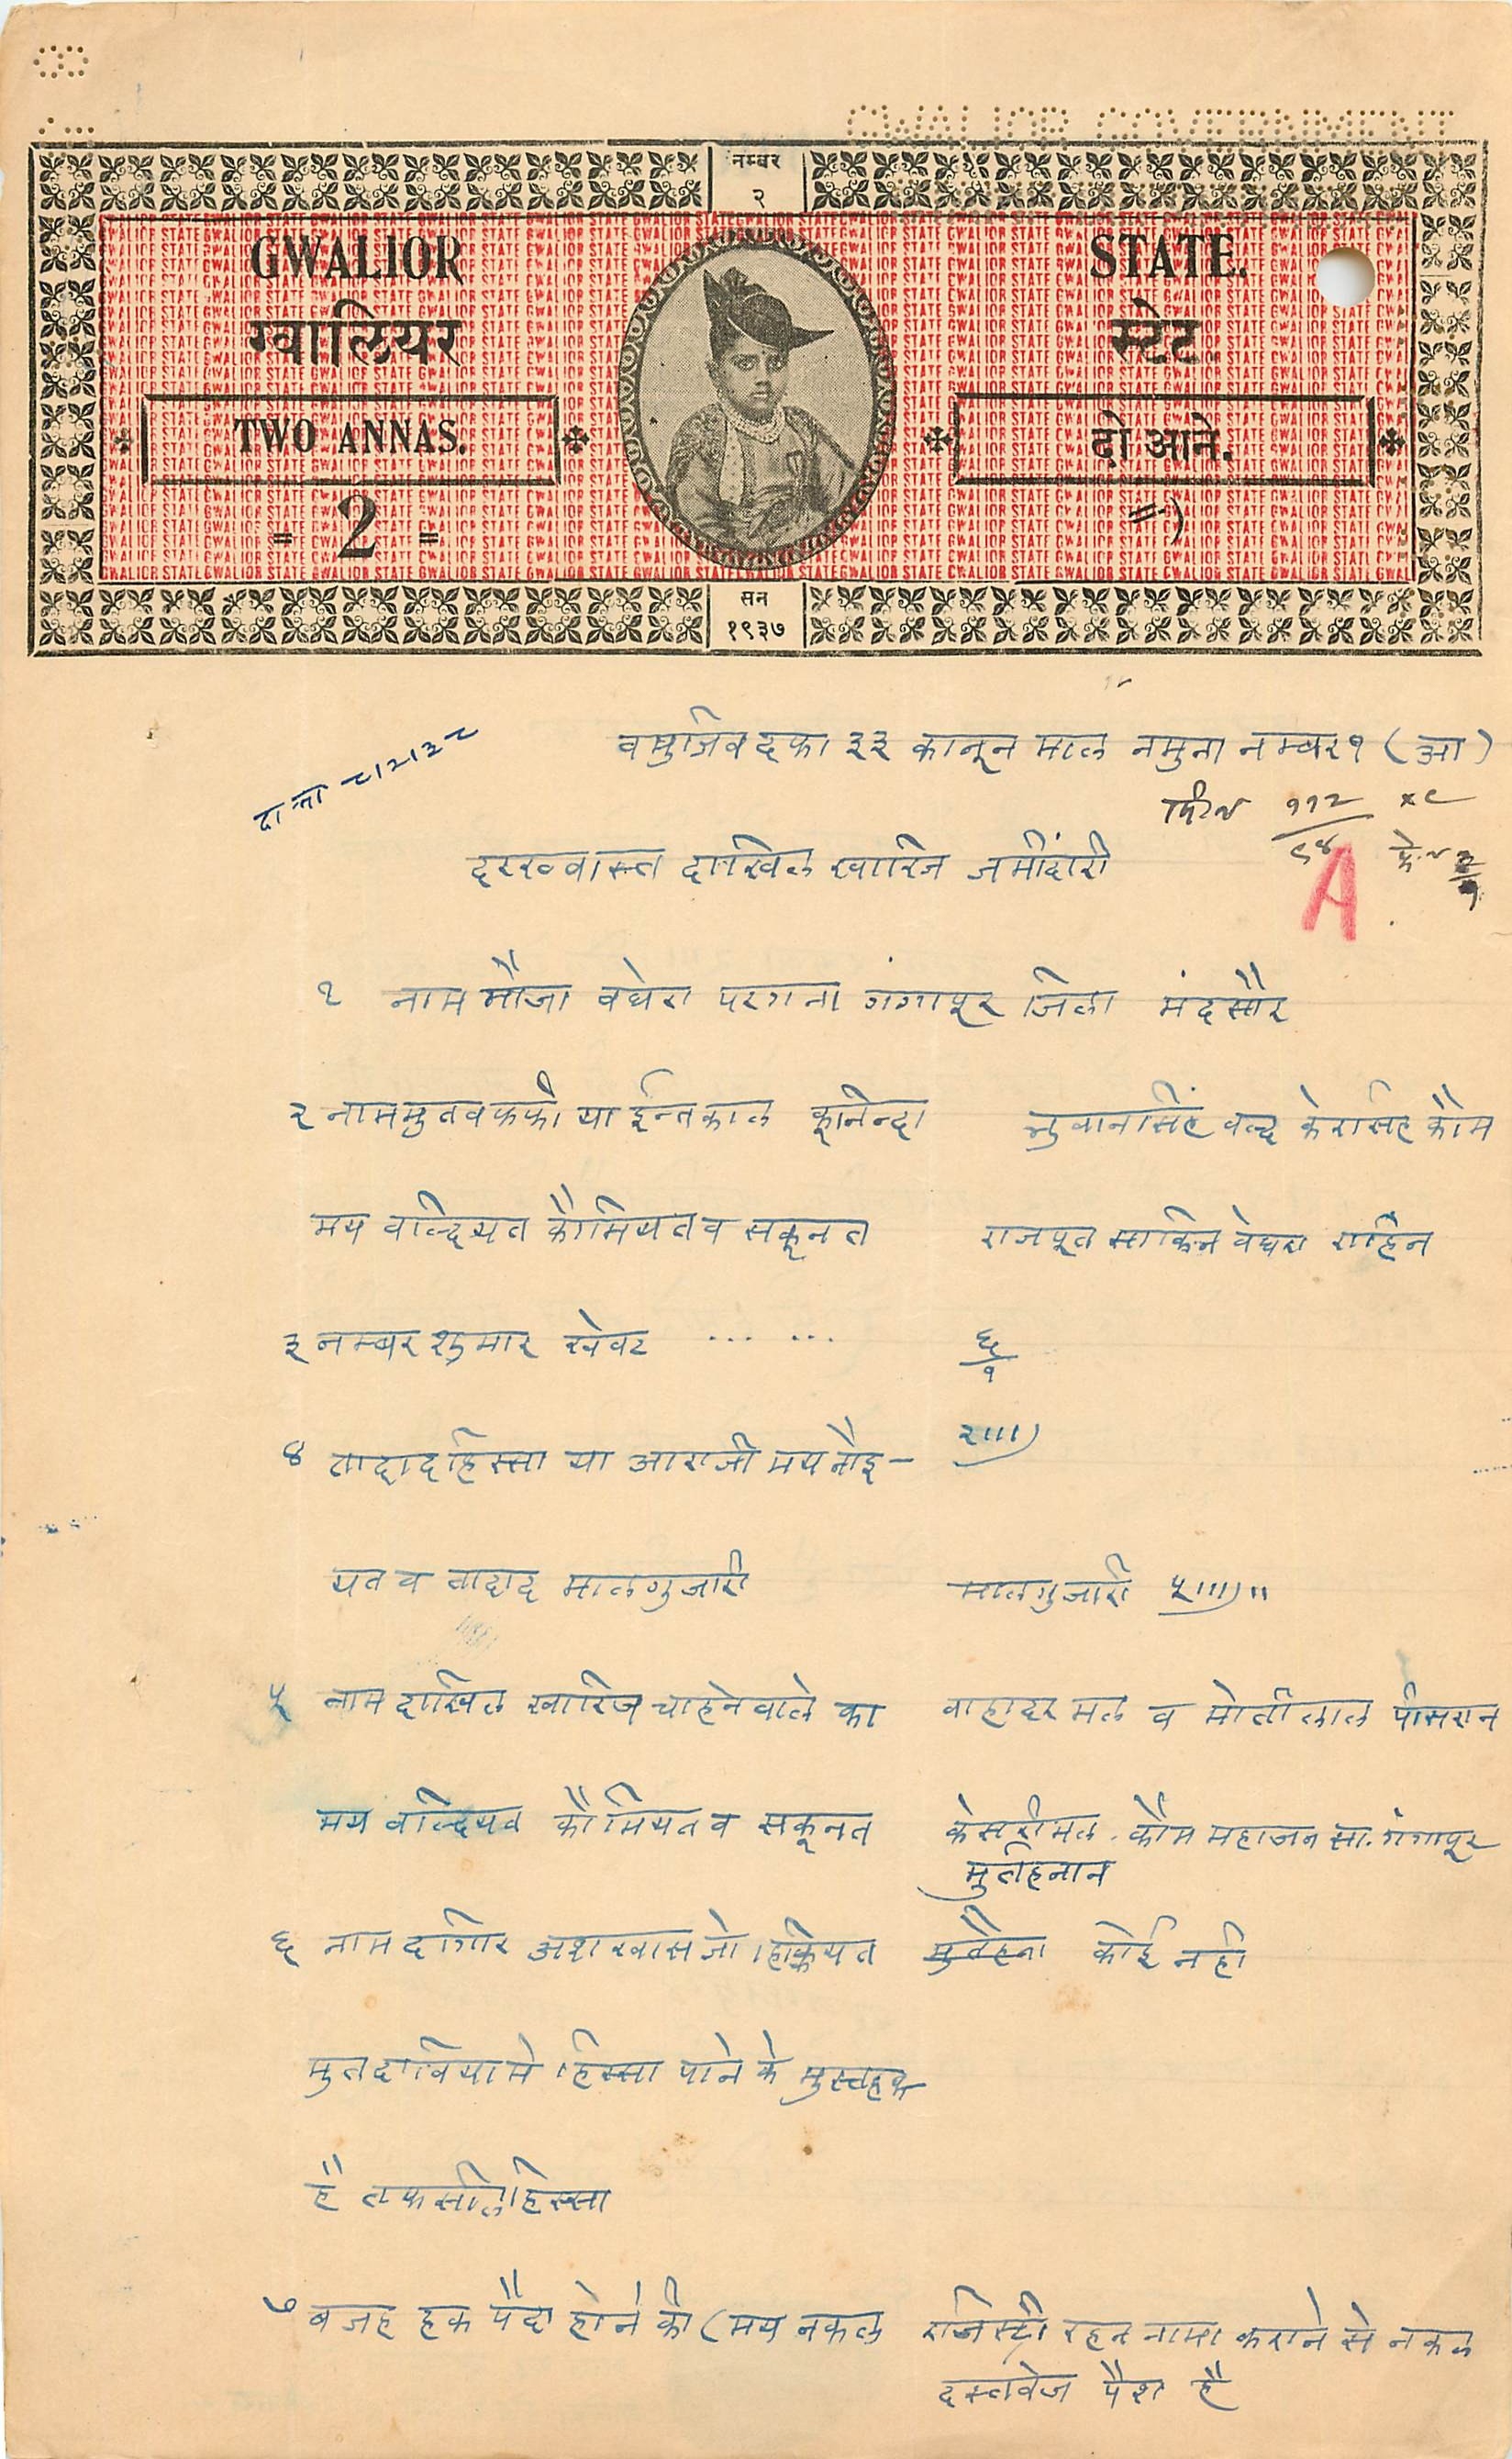 GWALIOR GOVERNMENT
नम्बर
२
GWALIOR STATE.
ग्वालियर स्टेट.
TWO ANNAS. दो आने.
= 2 = =)
सन
१९३७
बमुजिब दफा ३३ कानून माल नमुना नम्बर १ (आ)
दा ता ८।२।३८
११२
A
दरख्वास्त दाखिल खारिज जमींदारी
१ नाम मौजा बघेरा परगना गंगापूर जिला मंदसौर
२ नाम मुतवफफी या ईन्तकाल कूनेन्दा जुवानसिंह वल्द केरासिंह कौम
मय वल्दियत कौमियत व सकूनत राजपूत साकिन वेघरा राहिन
३ नम्बर शुमार खेवट ... ... ६/१
४ तादाद हिस्सा या आराजी मय नोइ- २॥।)
यत व तादाद मालगुजारी मालगुजारी ५॥।)॥
५ नाम दाखिल खारिज चाहने वाले का बाहादर मल व मोतीलाल पीसरान
मय वल्दियत कौमियत व सकूनत केसरीमल कौम महाजन सा. गंगापूर
मुर्तहनान
६ नाम दीगर अशखास जो हक्कियत मुर्तहना कोई नही
मुतदाविया मे हिस्सा पाने के मुस्तहक
है तफसील हिस्सा
७ बजह हक पैदा होने की (मय नकल रजिस्ट्री रहन नामा कराने से नकल
दस्तवेज पैश है